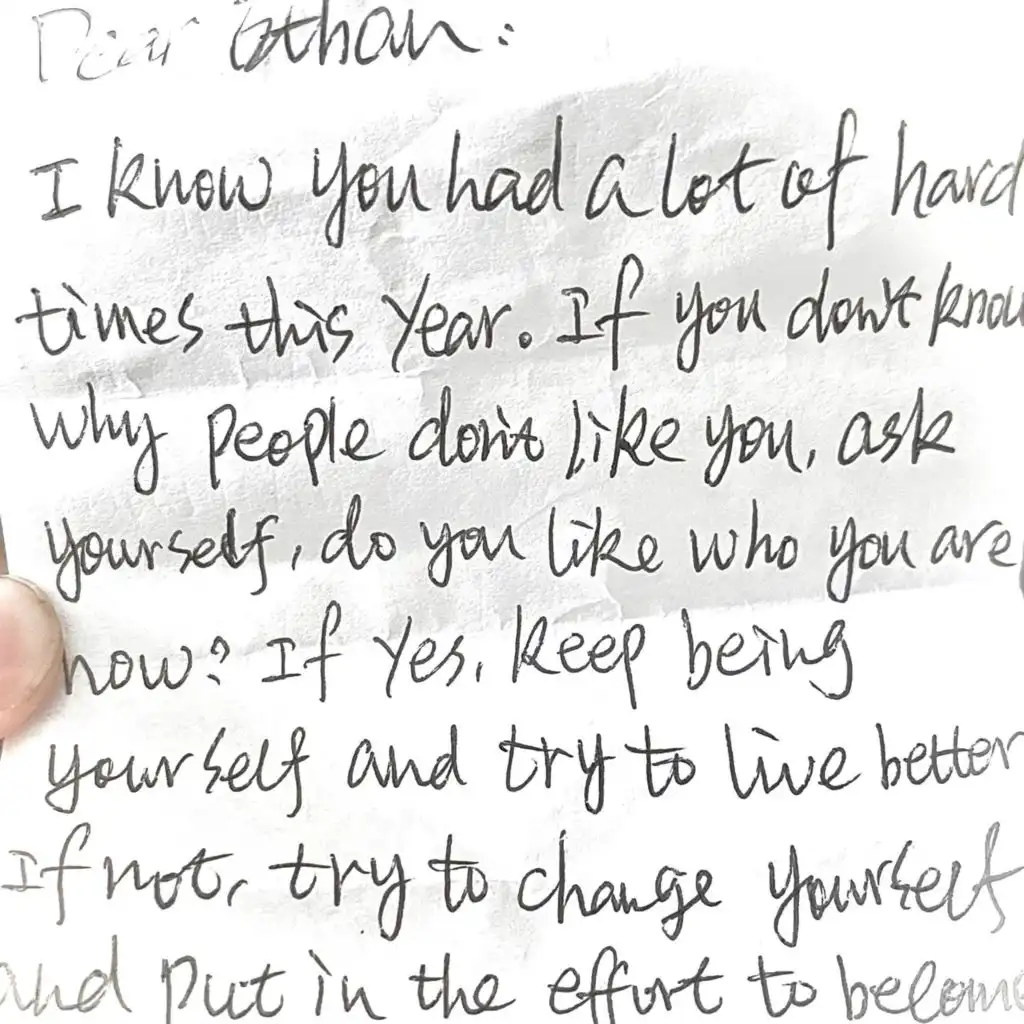 Dear Ethan:
I know you had a lot of hard
times this year. If you don't know
why people don't like you, ask
yourself, do you like who you are
now? If yes, keep being
yourself and try to live better
If not, try to change yourself
and put in the effort to become